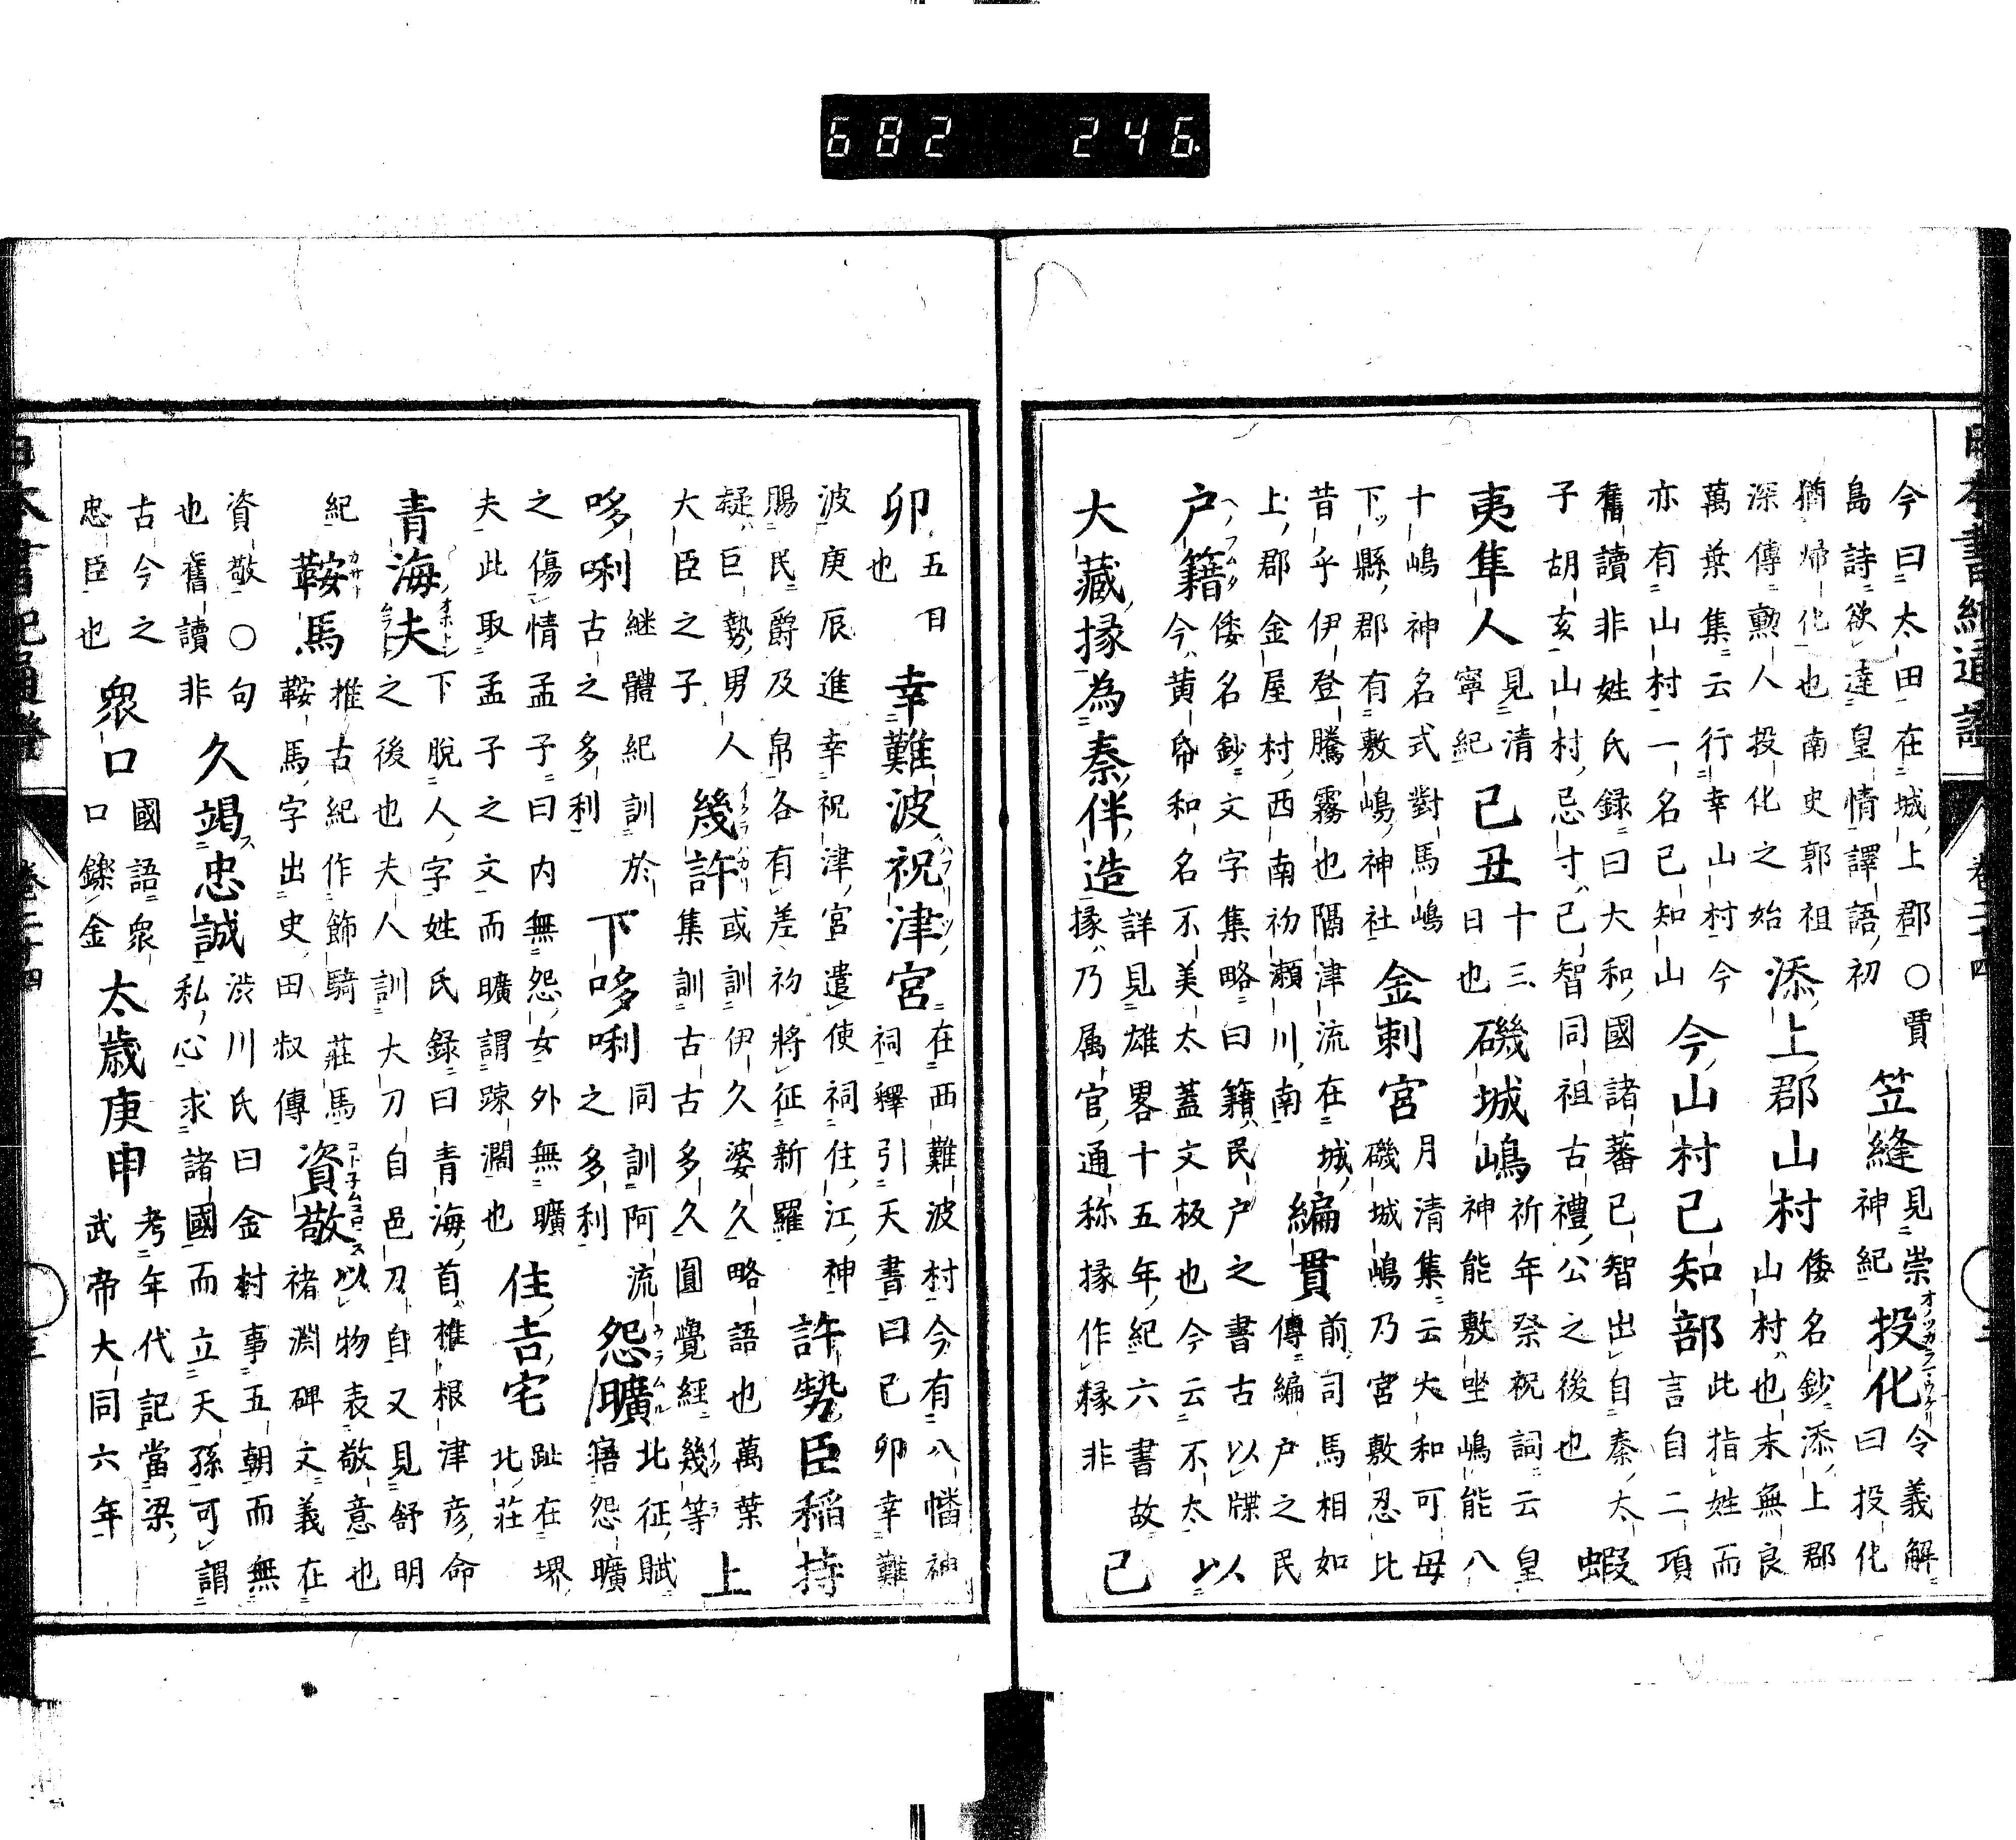 日本書紀通證 卷二十四
今曰太田在城上郡○賈
島詩欲達皇情譯語初
笠縫
見崇
神紀
投化
令義解
曰投化
猶帰化也南史郭祖
深傳勲人投化之始
添上郡山村
倭名鈔添上郡
山村也末無良
萬葉集云行幸山村今
亦有山村一名已知山
今山村己知部
此指姓而
言自二項
舊讀非姓氏録曰大和國諸蕃已智出自秦太
子胡亥山村忌寸已智同祖古禮公之後也
蝦
夷隼人
見清
寧紀
己丑
十三
日也
磯城嶋
祈年祭祝詞云皇
神能敷坐嶋能八
十嶋神名式對馬嶋
下縣郡有敷嶋神社
金刺宮
月清集云大和可毋
磯城嶋乃宮敷忍比
昔乎伊登騰霧也隔津流在城
上郡金屋村西南初瀬川南
編貫
前司馬相如
傳編户之民
户籍
倭名鈔文字集略曰籍民户之書古以牒
今黄帋和名不美太蓋文板也今云不太
以
大藏掾為秦伴造
詳見雄畧十五年紀六書故
掾乃属官通称掾作椽非
己
卯
五日
也
幸難波祝津宮
在西難波村今有八幡神
祠釋引天書曰已卯幸難
波庚辰進幸祝津宮遣使祠住江神
賜民爵及帛各有差初將征新羅
許勢臣稲持
疑巨勢男人
大臣之子
幾許
或訓伊久婆久略語也萬葉
集訓古古多久圓覺經幾等
上
哆唎
継體紀訓於
古之多利
下哆唎
同訓阿流
之多利
怨曠
北征賦
寤怨曠
之傷情孟子曰内無怨女外無曠
夫此取孟子之文而曠謂踈濶也
住吉宅
趾在堺
北莊
青海夫
下脱人字姓氏録曰青海首椎根津彦命
之後也夫人訓大刀自邑刀自又見舒明
紀
鞍馬
推古紀作飾騎莊馬
鞍馬字出史田叔傳
資敬
以物表敬意也
禇淵碑文義在
資敬○句
也舊讀非
久竭忠誠
渋川氏曰金村事五朝而無
私心求諸國而立天孫可謂
古今之
忠臣也
衆口
國語衆
口鑠金
太歳庚申
考年代記當梁
武帝大同六年
682 246